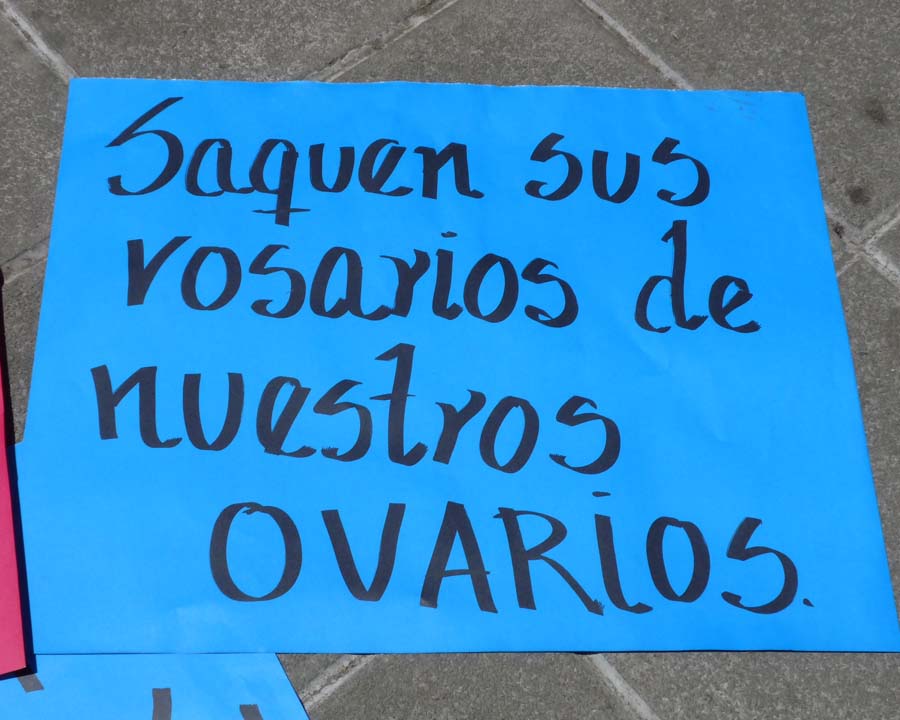 Saquen sus
rosarios de
nuestros
OVARiOS.